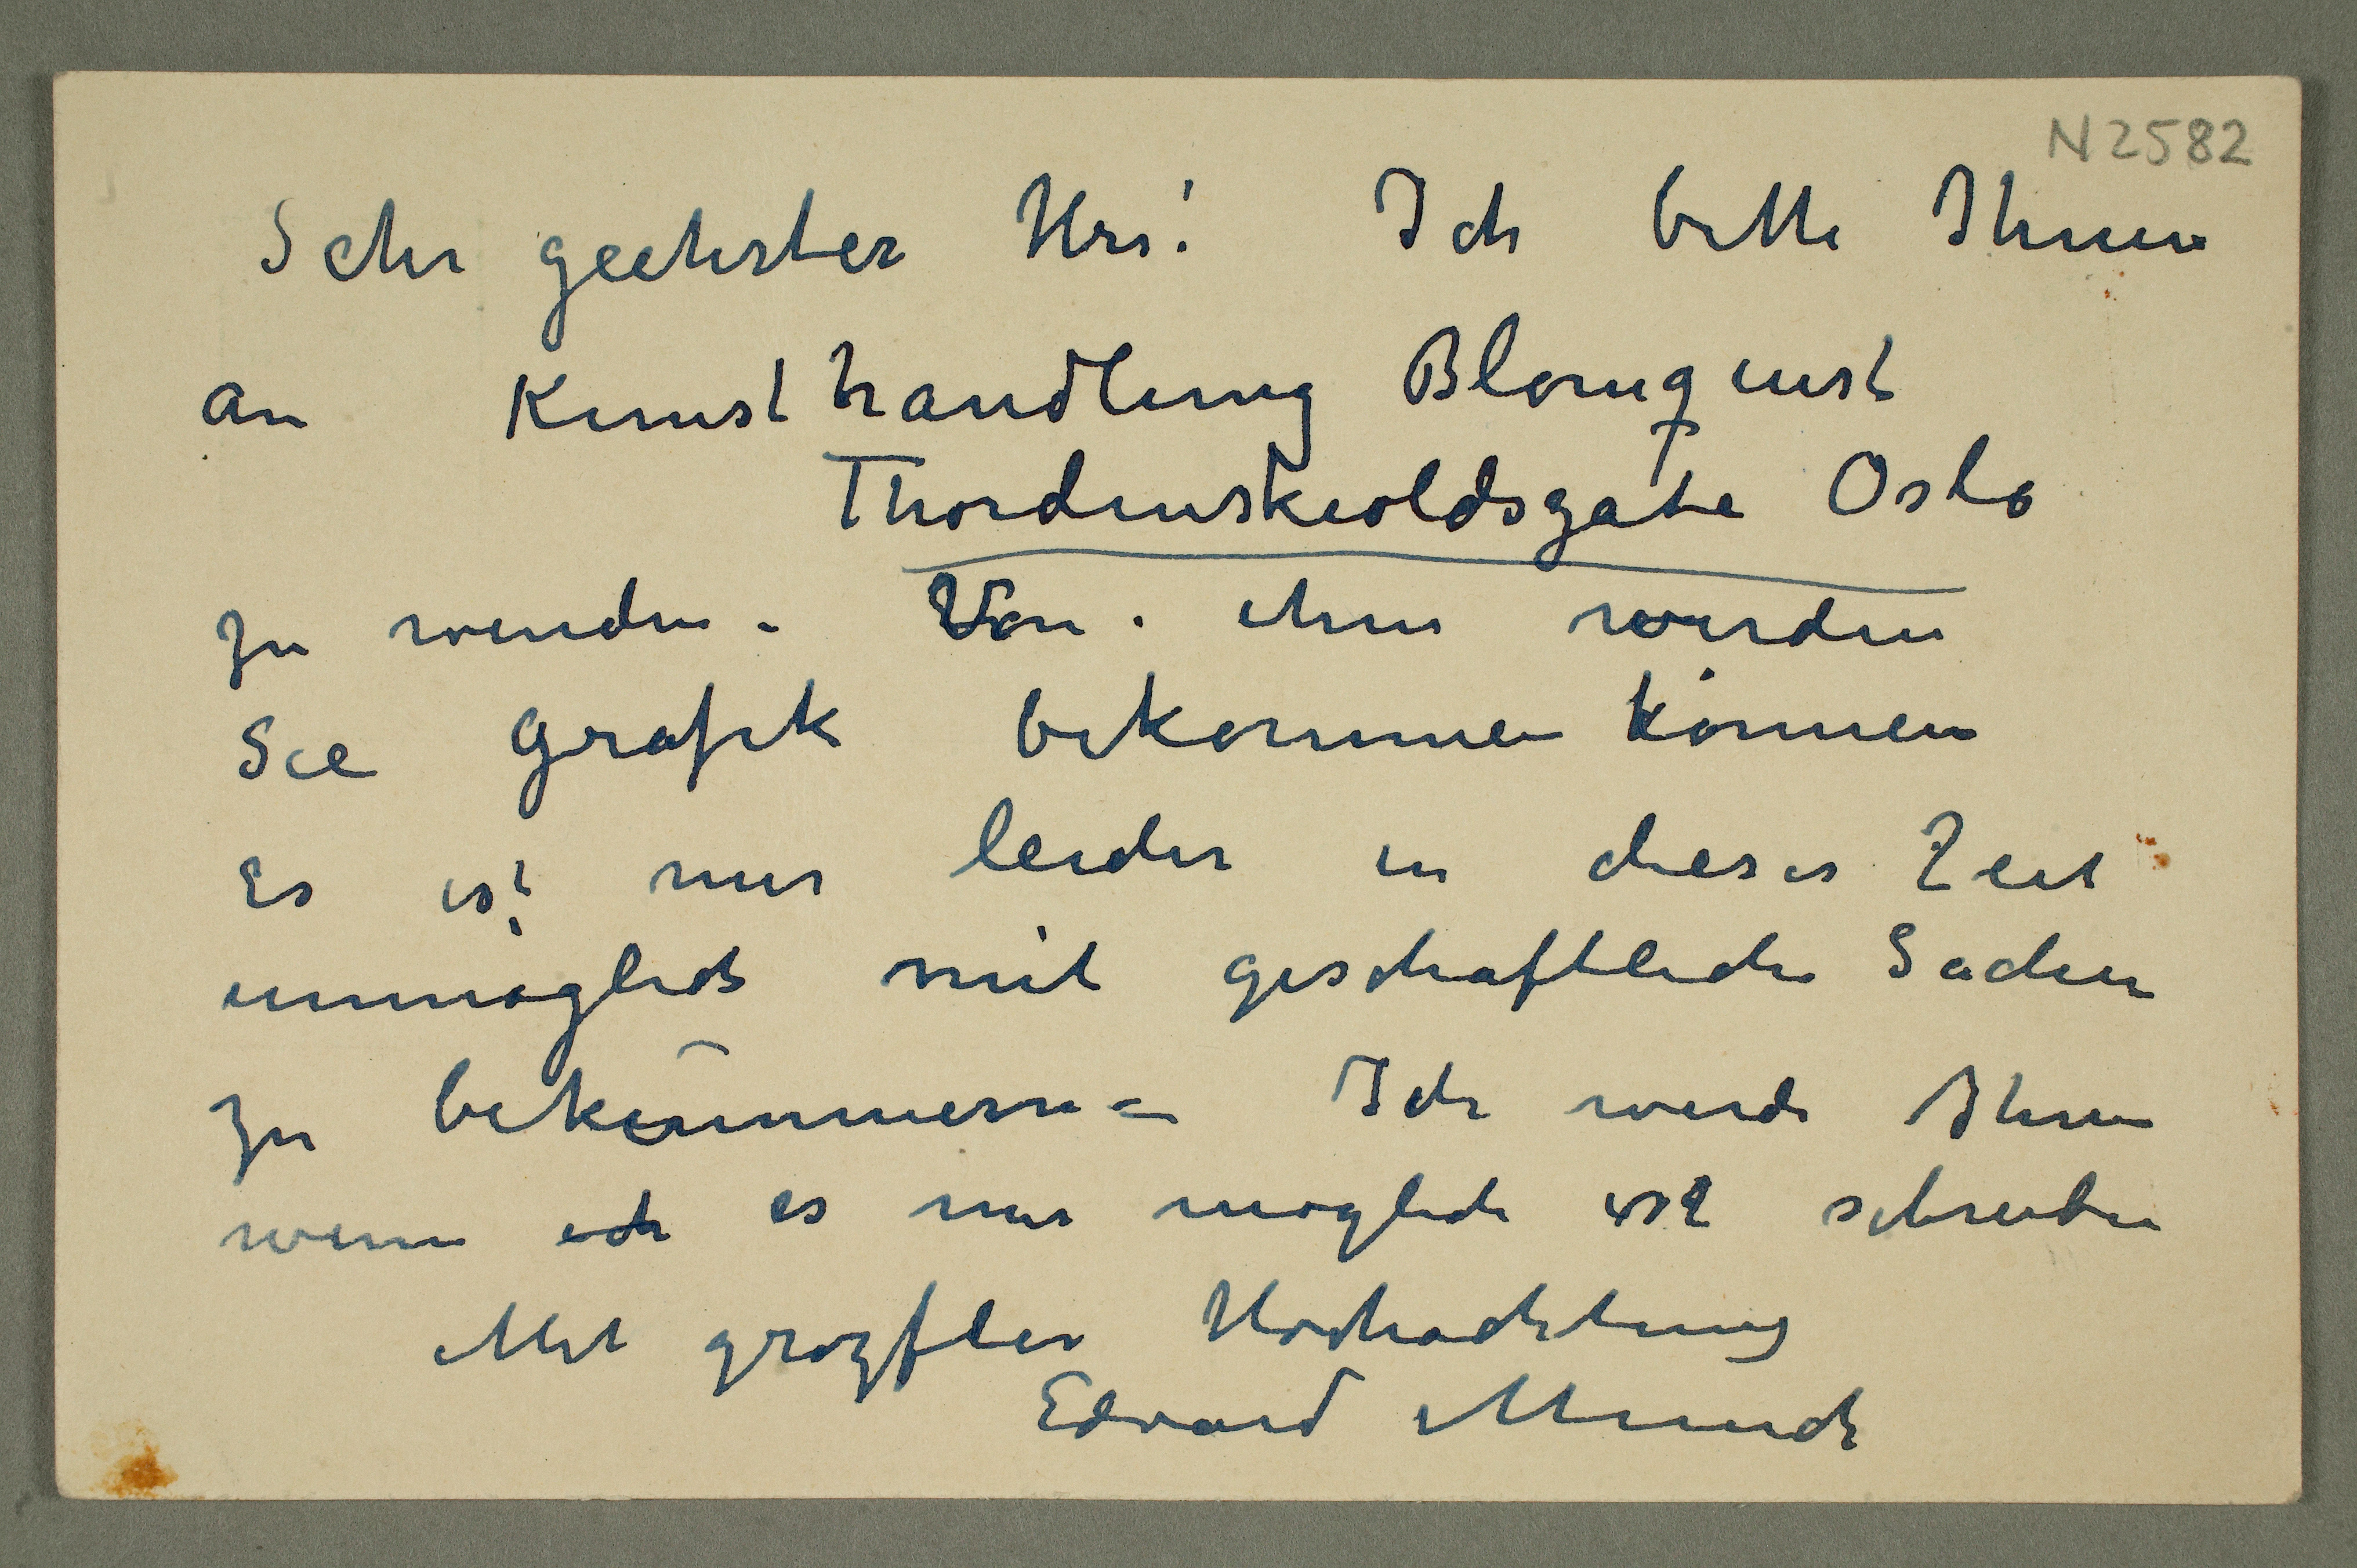 N 2582
Sehr geehrter Hrr! Ich bitte Ihnen
an Kunsthandlung Blomquist
Thordenskioldsgate Oslo
zu wenden – Von ihm werden
Sie Grafik bekommen können
Es ist mir leider in dieser Zeit
unmöglich mit geschaftliche Sachen
zu bekümmern – Ich werde Ihnen
wenn ich es mir moglich ist schreiben
Mit grozster Hochachtung
Edvard Munch